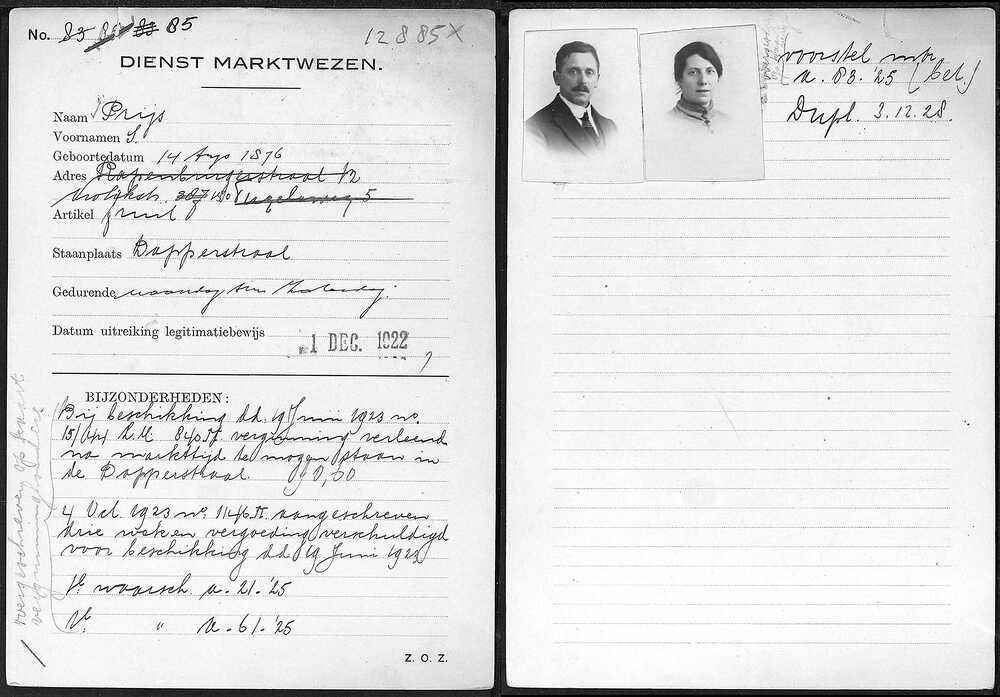 No. 83 85 83 85
12885 X
DIENST MARKTWEZEN.
Naam Prijs
Voornamen S.
Geboortedatum 14 Aug 1876
Adres Rapenburgerstraat 12
Wolykstr. 190 5
Artikel fruit
Staanplaats Dapperstraat
Gedurende maandag t/m Zaterdag.
Datum uitreiking legitimatiebewijs
1 DEC. 1922
BIJZONDERHEDEN:
Bij beschikking dd. 19 Juni 1923 no.
15/ R.M. 840 vergunning verleend
na markttijd te mogen staan in
de Dapperstraat.
4 Oct. 1923 no. 1146 aangeschreven
drie weken vergoeding verschuldigd
voor beschikking dd 19 Juni 1923
1e waarsch. a. 21-'25
1e " a. 61-'25
overgeschreven op kaart
Z. O. Z.
voorstel intr.
a. 83.'25 (bel.)
Dupl. 3.12.28.